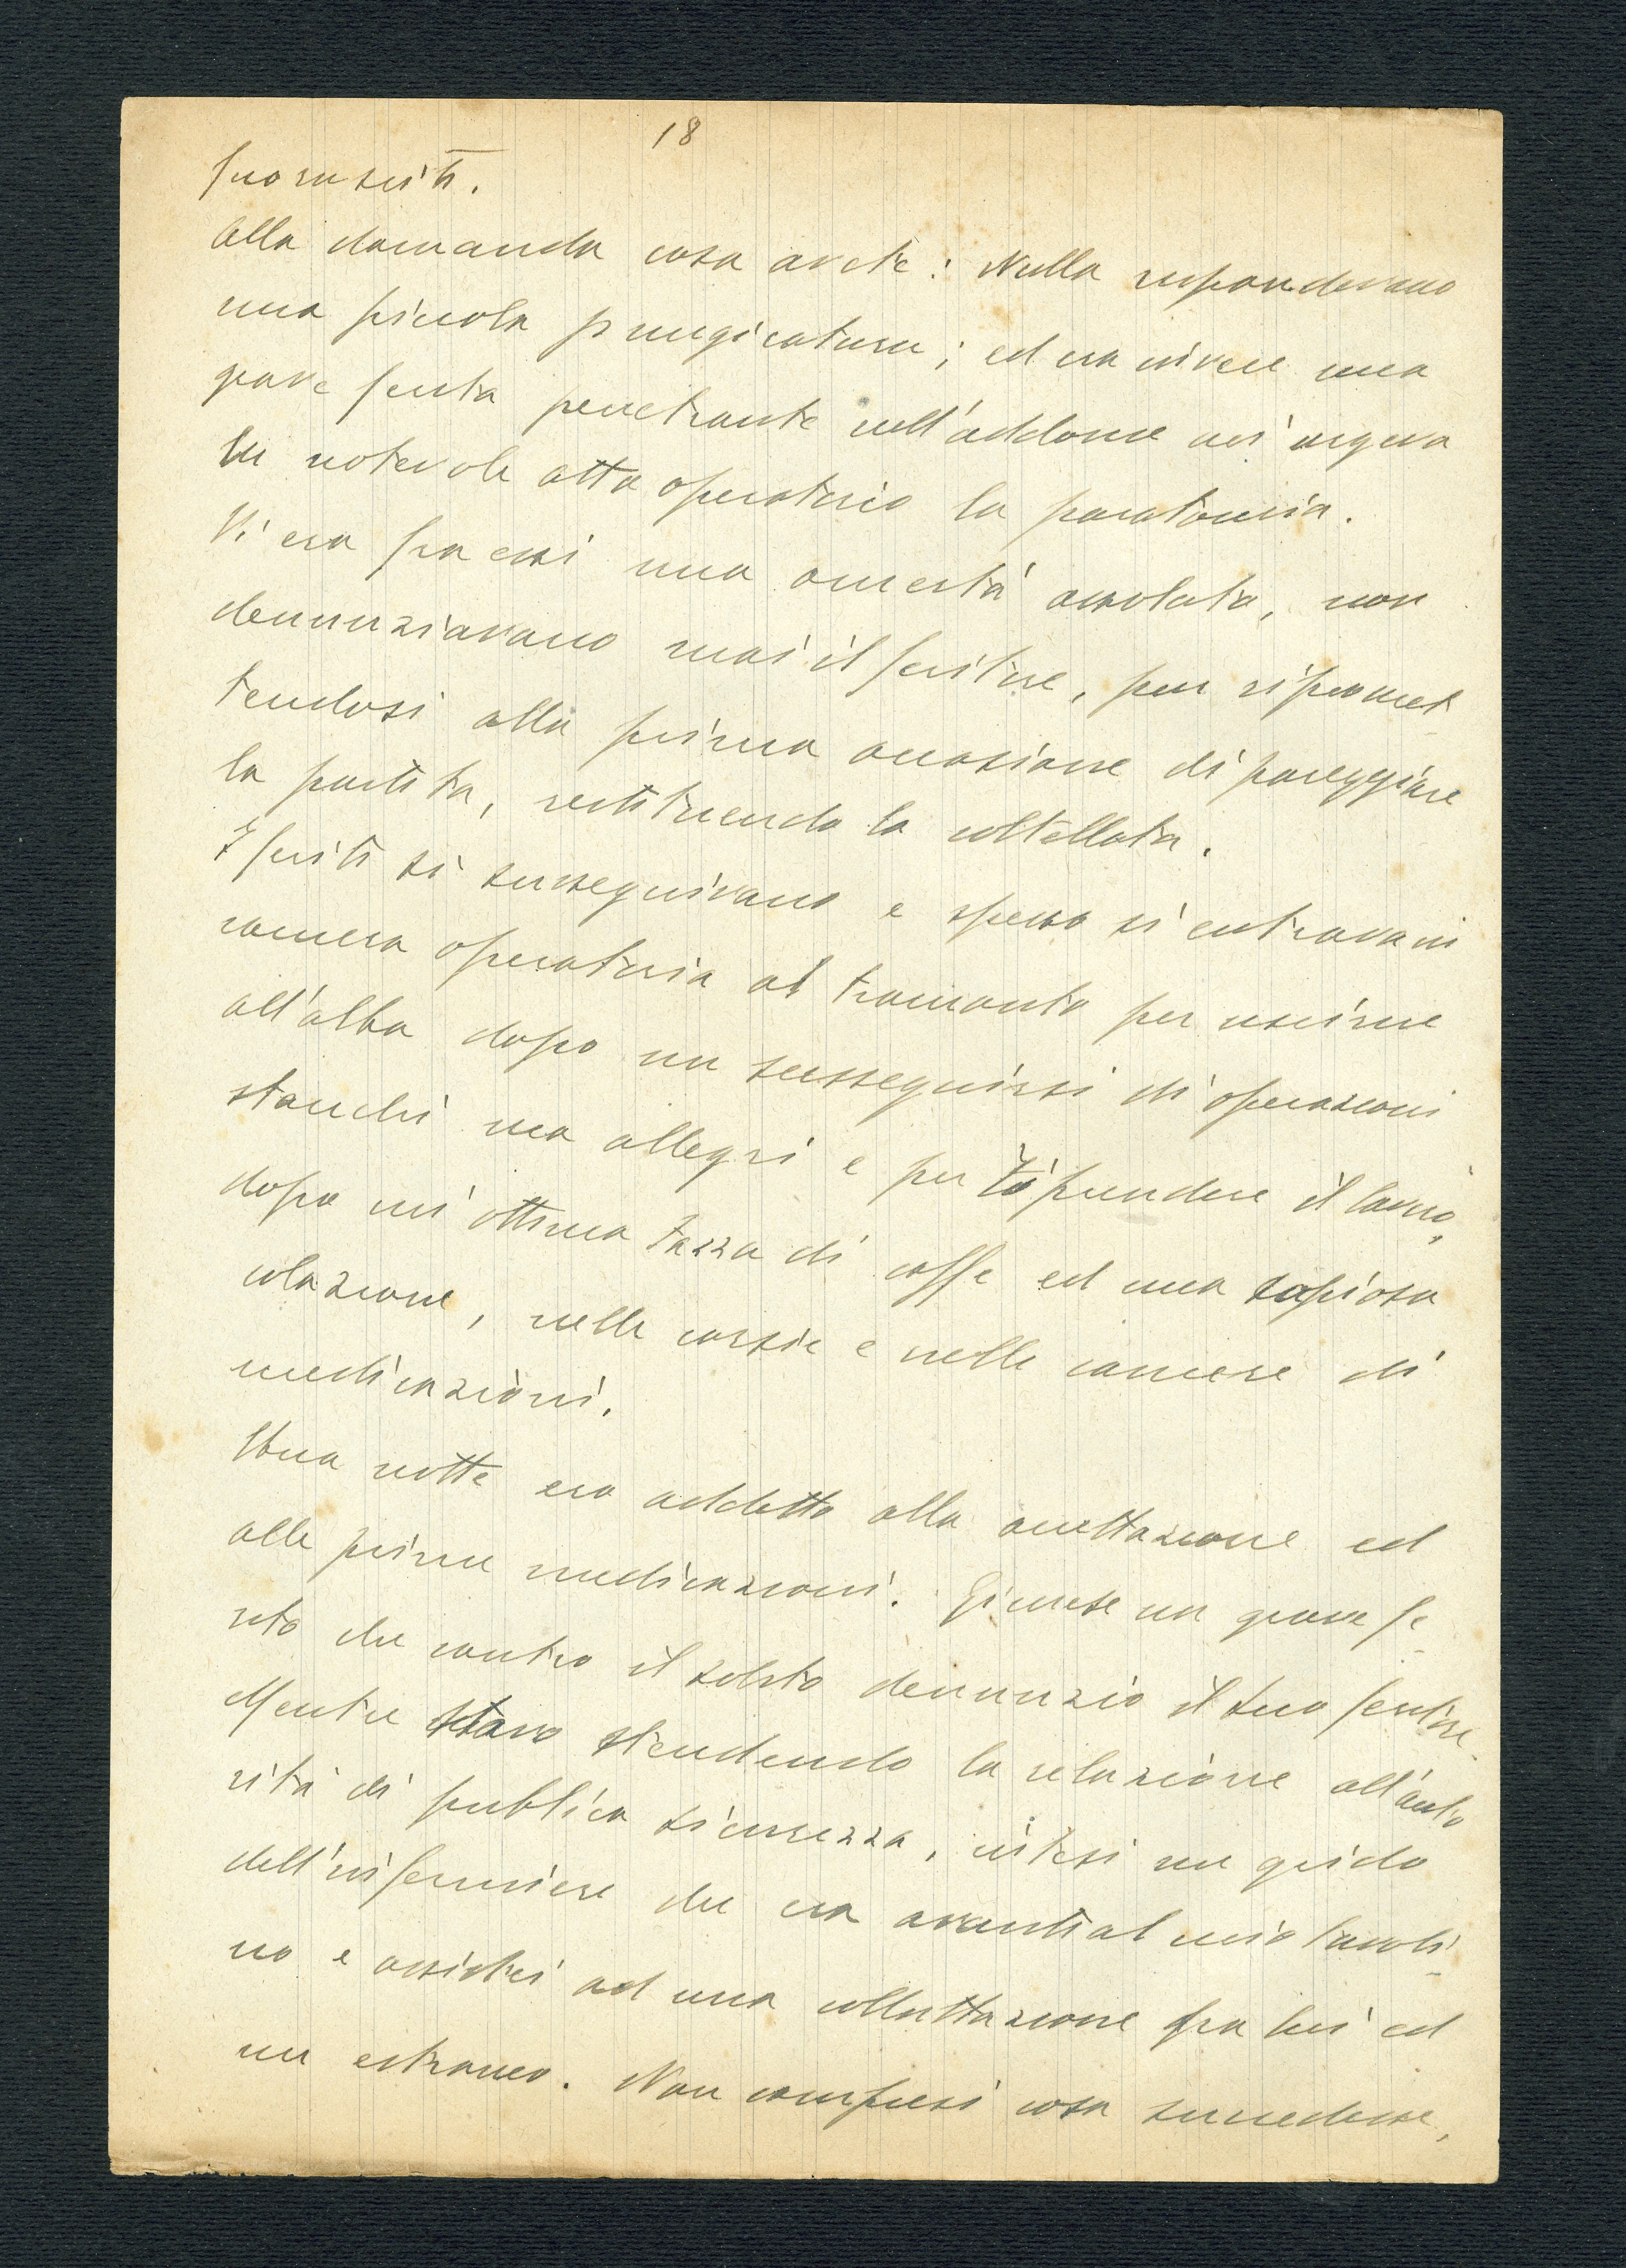 18
fuorusciti.
Alla domanda cosa avete: Nulla rispondevano
una piccola pungicatura; ed era invece una
grave ferita penetrante nell'addome ed urgeva
un notevole atto operatorio la paratomia.
Vi era fra essi una omertà assoluta, non
denunziavano mai il feritore, pur ripromet
tendosi alla prima occasione di pareggiare
la partita, restituendo la coltellata.
I feriti si susseguivano e spesso si entrava in
camera operatoria al tramonto per uscirne
all'alba dopo un susseguirsi di operazioni
stanchi ma allegri e per riprendere il lavoro,
dopo un'ottima tazza di caffe ed una copiosa
colazione, nelle corsie e nelle camere di
medicazioni.
Una notte ero addetto alla accettazione ed
alle prime medicazioni. Giunse un grave fe
rito che contro il solito denunzio il suo feritore.
Mentre stavo stendendo la relazione all'auto
rità di publica sicurezza, intesi un grido
dell'infermiere che era avanti al mio tavoli
no e assistei ad una colluttazione fra lui ed
un estraneo. Non compresi cosa succedesse,